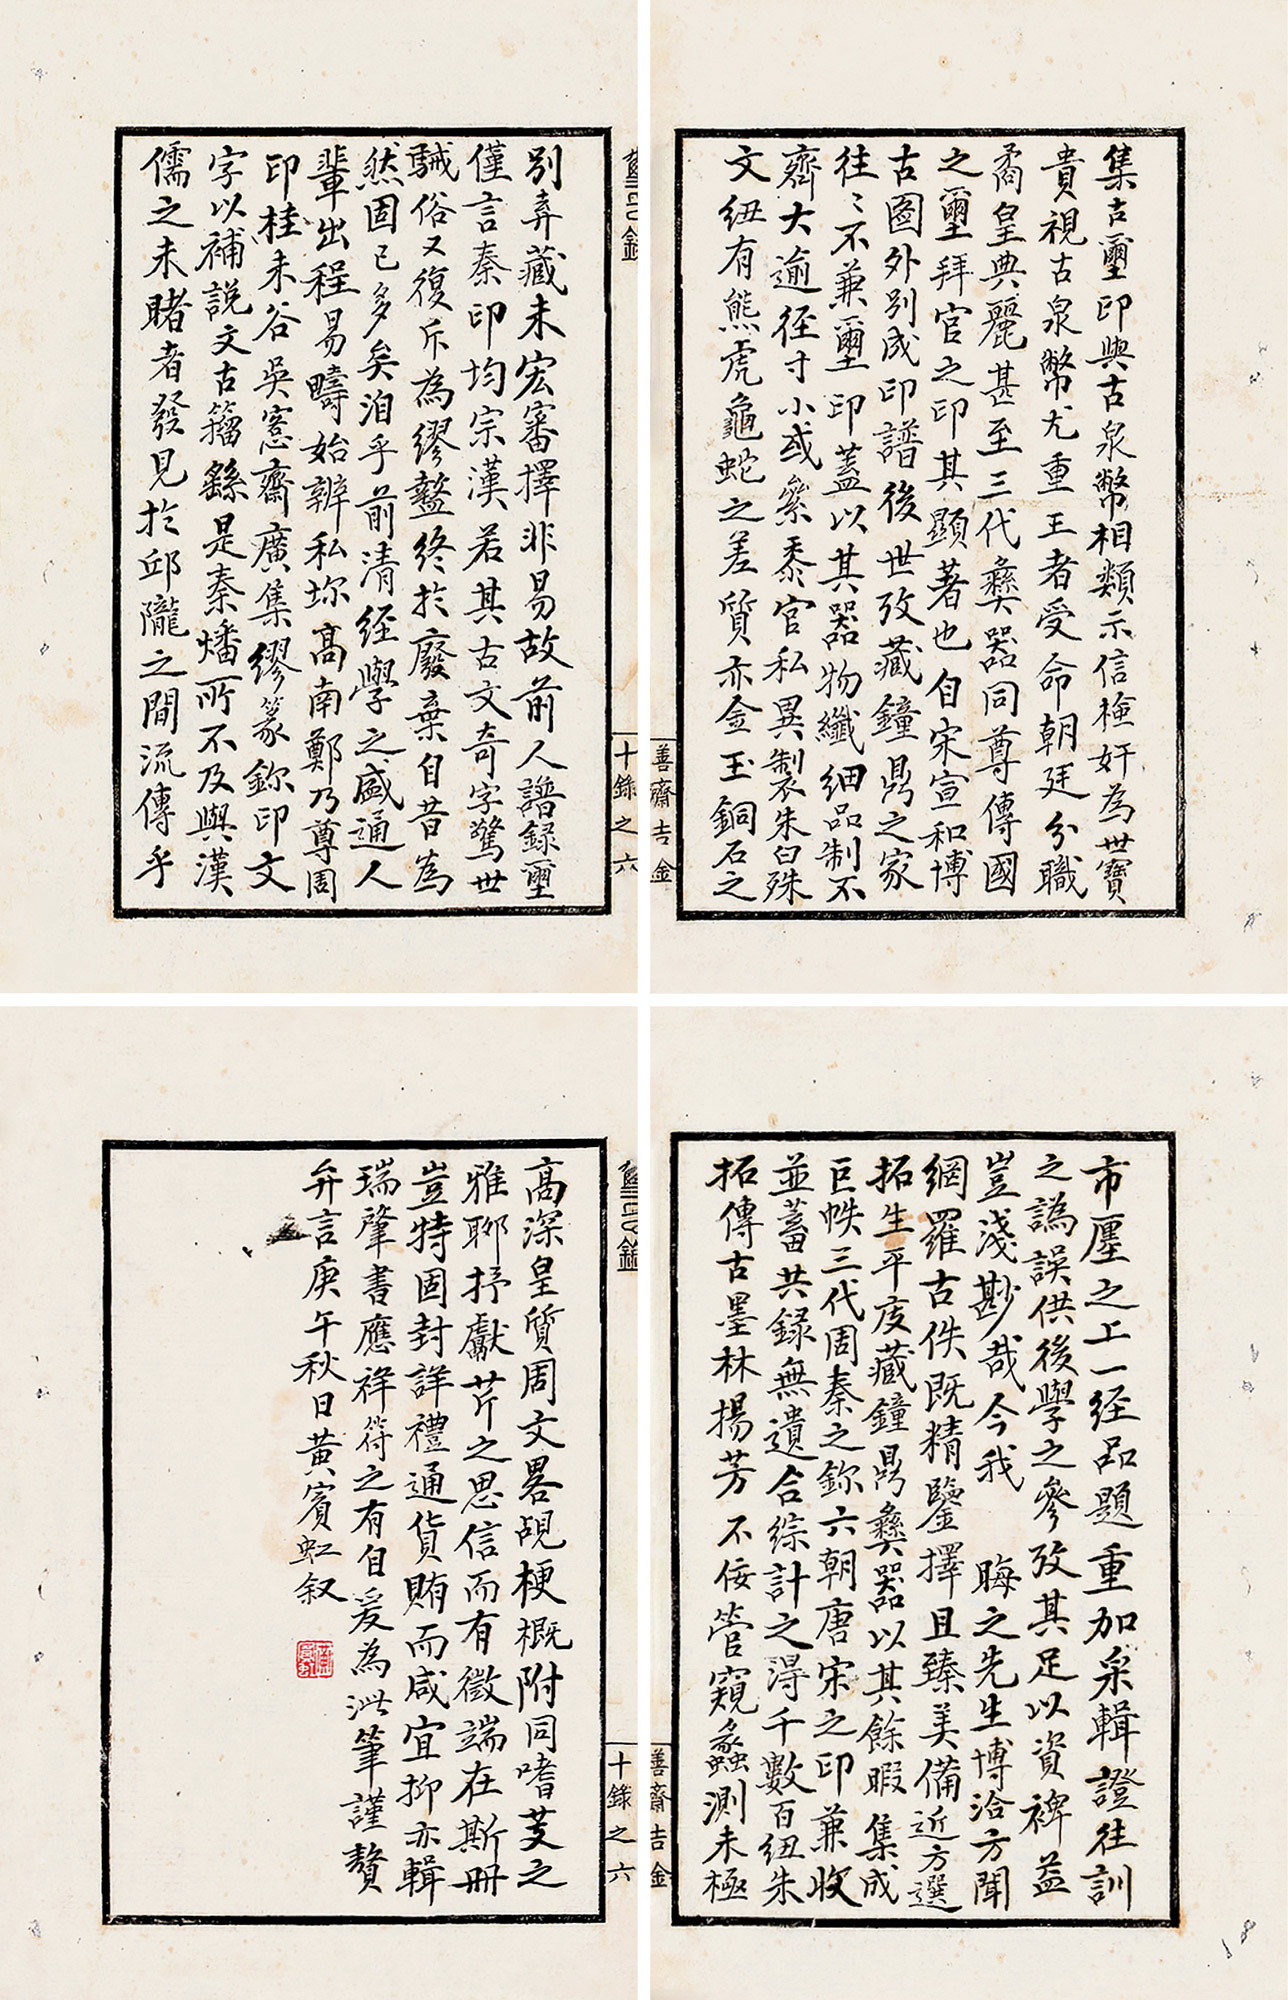 集古璽印與古泉幣相類示信檢奸為世寶
貴視古泉幣尤重王者受命朝廷分職
矞皇典麗甚至三代彝器同尊傳國
之璽拜官之印其顯著也自宋宣和博
古圖外別成印譜後世攷藏鐘鼎之家
往〻不兼璽印蓋以其器物纖細品制不
齊大逾徑寸小或絫黍官私異製朱白殊
文紐有熊虎龜蛇之差質亦金玉銅石之
善齋吉金
十錄之六
璽印錄
別弆藏未宏審擇非易故前人譜録璽
僅言秦印均宗漢若其古文奇字驚世
駴俗又復斥為繆盭終於廢棄自昔為
然固已多矣洎乎前清經學之盛通人
輩出程易疇始辨私㘥高南鄭乃尊周
印桂未谷吳愙齋廣集繆篆鉨印文
字以補説文古籀繇是秦燔所不及與漢
儒之未睹者發見於邱隴之間流傳乎
市廛之上一經品題重加采輯證往訓
之譌誤供後學之參攷其足以資裨益
豈淺尠哉今我 晦之先生博洽方聞
網羅古佚既精鑒擇且臻美備近方選
拓生平庋藏鐘鼎彝器以其餘暇集成
巨帙三代周秦之鉨六朝唐宋之印兼收
並蓄共録無遺合綜計之得千數百紐朱
拓傳古墨林揚芳不佞管窺蠡測未極
善齋吉金
十錄之六
璽印錄
高深皇質周文畧覘梗概附同嗜芰之
雅聊抒獻芹之思信而有徵端在斯冊
豈特固封詳禮通貨賄而咸宜抑亦輯
瑞肇書應祥符之有自爰為泚筆謹贅
弁言庚午秋日黃賓虹叙